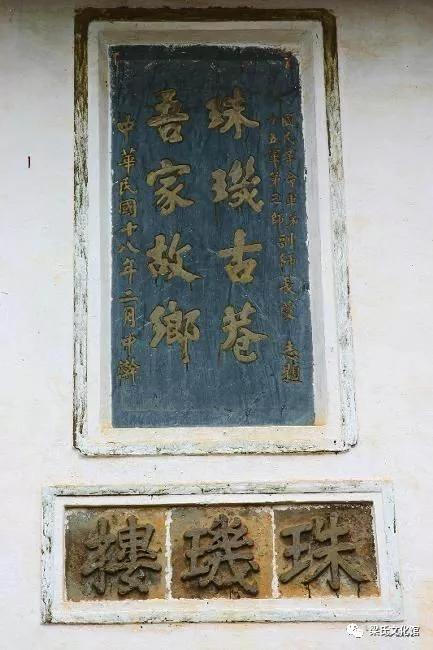 國民革命軍第
十五軍第三師副師長
志題
珠璣古巷
吾家故鄉
中華民國十八年二月中澣
珠璣樓
梁氏文化馆